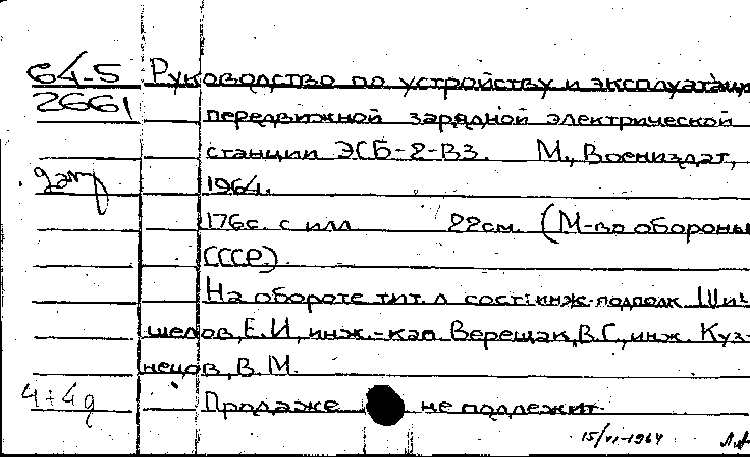 64-5 Руководство по устройству и эксплуатации
2661 передвижной зарядной электрической
станции ЭСБ-2-ВЗ. М., Воениздат,
1964.
176с. с илл 22см. (М-во обороны
СССР).
На обороте тит. л сост: инж.-подполк Ши-
шелов, Е.И, инж.-кап. Верещак, В.Г., инж. Куз-
нецов, В.М.
4+4д Продаже не подлежит.
15/VI-1964